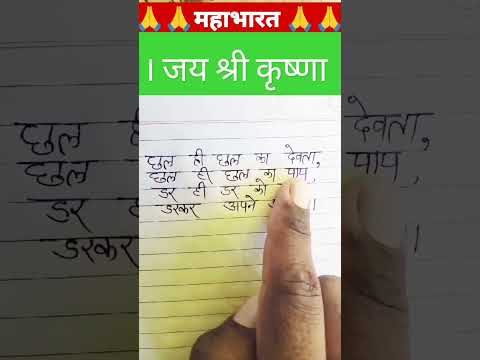 महाभारत
। जय श्री कृष्णा
छल ही छल का देवता,
छल ही छल का पाप,
डर ही डर को
डरकर अपने